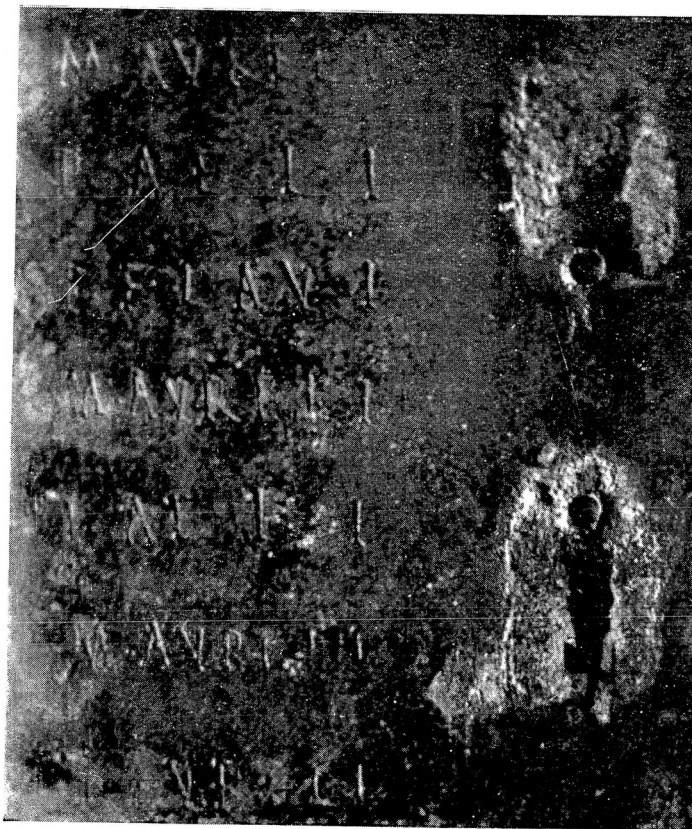 M AVRELI
P AELI
FLAVI
M AVRELI
AELI
M AVRELI